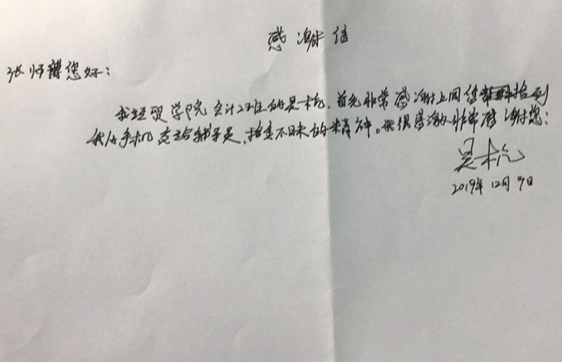 感谢信
张师傅您好：
我经贸学院会计2班的吴杭，首先非常感谢上周您捡到
我的手机交给我们，拾金不昧的精神。我很感激非常感谢您！
吴杭
2019年12月9日